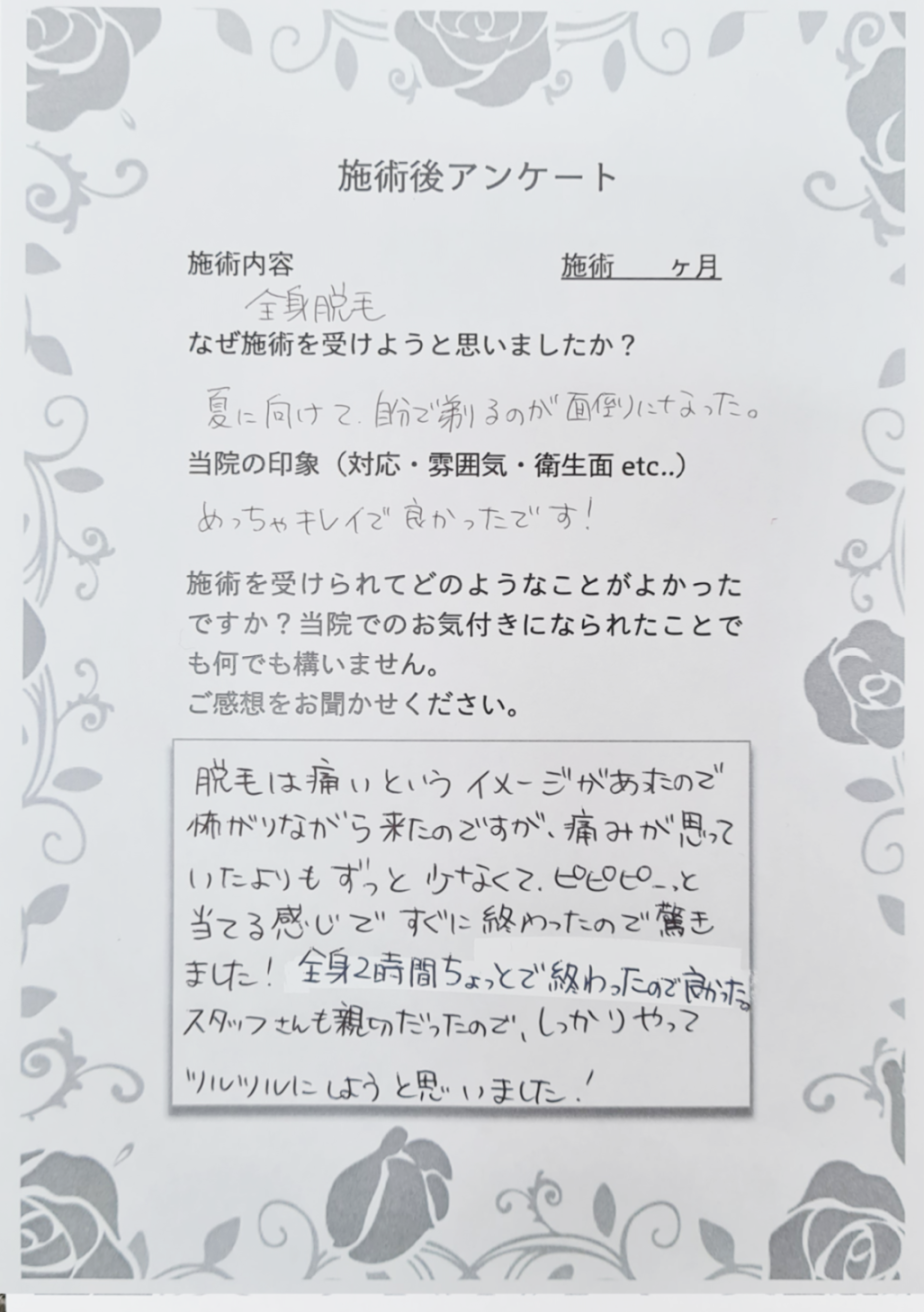 施術後アンケート
施術内容
施術　　ヶ月
全身脱毛
なぜ施術を受けようと思いましたか？
夏に向けて、自分で剃るのが面倒りになった。
当院の印象（対応・雰囲気・衛生面 etc..）
めっちゃキレイで良かったです！
施術を受けられてどのようなことがよかった
ですか？当院でのお気付きになられたことで
も何でも構いません。
ご感想をお聞かせください。
脱毛は痛いというイメージがあったので
怖がりながら来たのですが、痛みが思って
いたよりもずっと少なくて、ピピピーっと
当てる感じですぐに終わったので驚き
ました！全身2時間ちょっとで終わったので良かった。
スタッフさんも親切だったので、しっかりやって
ツルツルにしようと思いました！